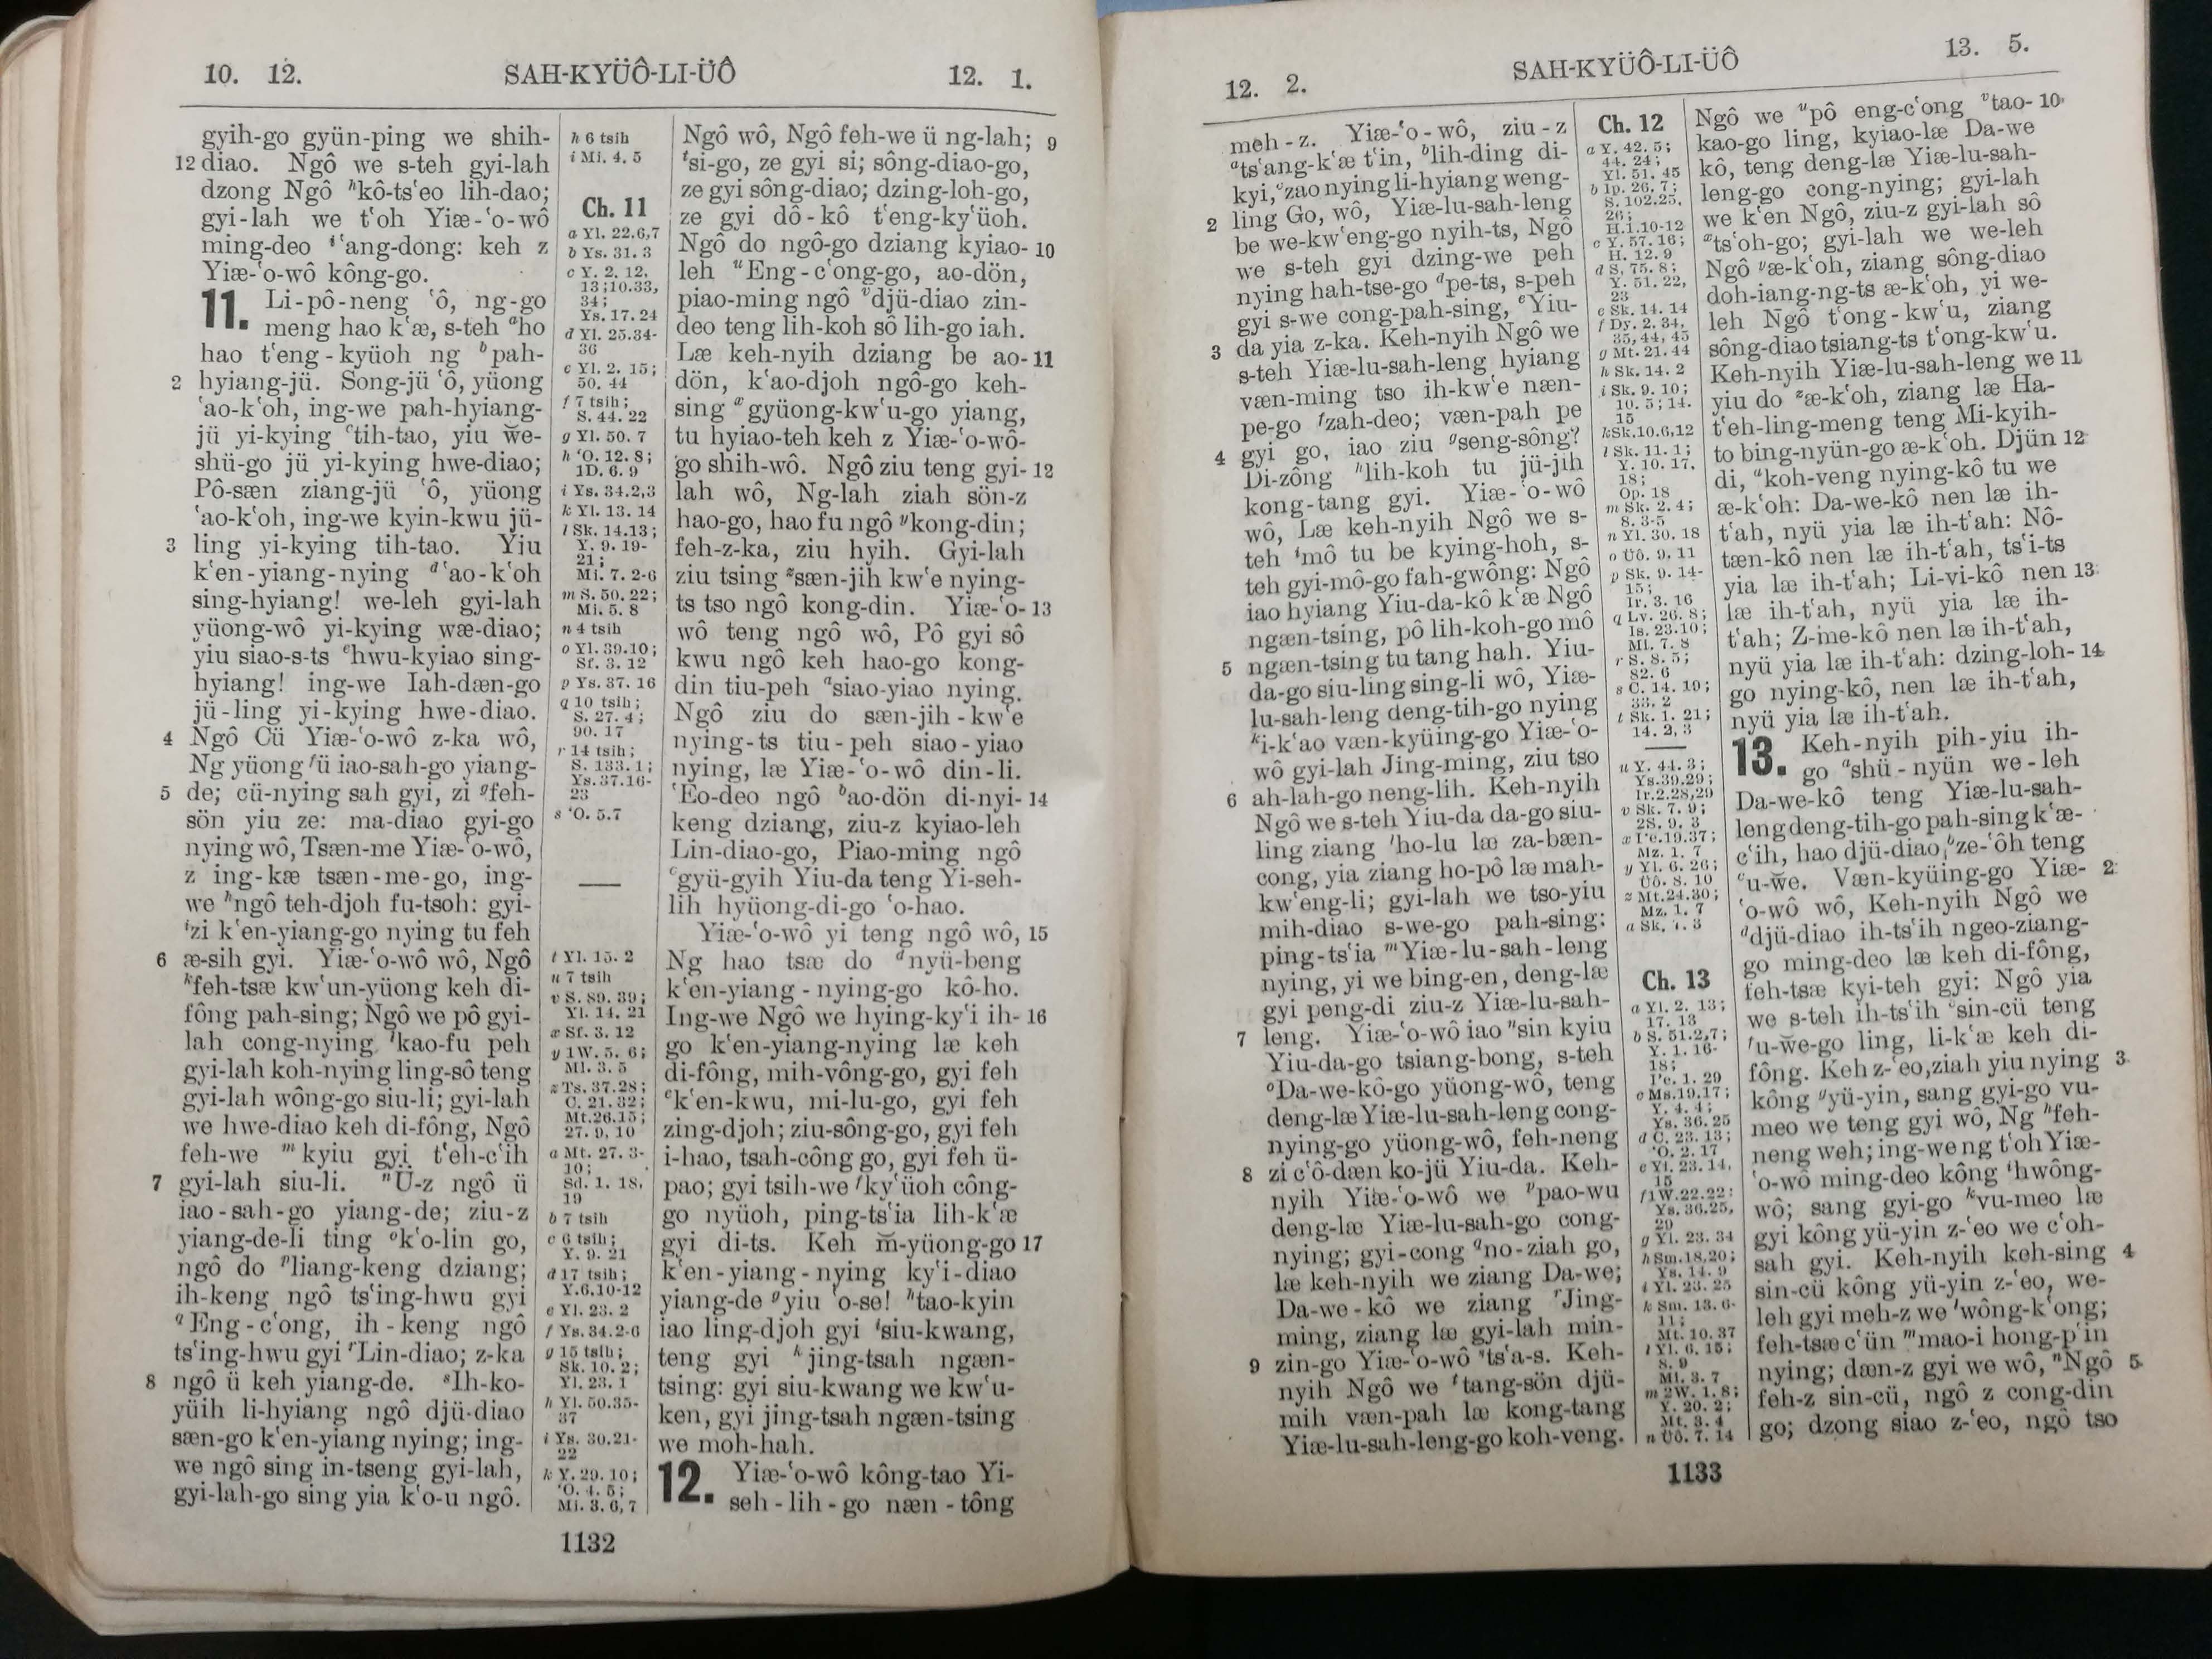 10. 12.
SAH-KYÜÔ-LI-ÜÔ
12. 1.
gyih-go gyün-ping we shih-
12 diao. Ngô we s-teh gyi-lah
dzong Ngô ʰkô-tsʻeo lih-dao;
gyi-lah we tʻoh Yiæ-ʻo-wô
ming-deo ⁱʻang-dong: keh z
Yiæ-ʻo-wô kông-go.
11. Li-pô-neng ʻô, ng-go
meng hao kʻæ, s-teh ᵃho
hao tʻeng-kyüoh ng ᵇpah-
2 hyiang-jü. Song-jü ʻô, yüong
ʻao-kʻoh, ing-we pah-hyiang-
jü yi-kying ᶜtih-tao, yiu w̌e-
shü-go jü yi-kying hwe-diao;
Pô-sæn ziang-jü ʻô, yüong
ʻao-kʻoh, ing-we kyin-kwu jü-
3 ling yi-kying tih-tao. Yiu
kʻen-yiang-nying ᵈʻao-kʻoh
sing-hyiang! we-leh gyi-lah
yüong-wô yi-kying wæ-diao;
yiu siao-s-ts ᵉhwu-kyiao sing-
hyiang! ing-we Iah-dæn-go
jü-ling yi-kying hwe-diao.
4 Ngô Cü Yiæ-ʻo-wô z-ka wô,
Ng yüong ᶠü iao-sah-go yiang-
5 de; cü-nying sah gyi, zi ᵍfeh-
sön yiu ze: ma-diao gyi-go
nying wô, Tsæn-me Yiæ-ʻo-wô,
z ing-kæ tsæn-me-go, ing-
we ʰngô teh-djoh fu-tsoh: gyi-
ⁱzi kʻen-yiang-go nying tu feh
6 æ-sih gyi. Yiæ-ʻo-wô wô, Ngô
ᵏfeh-tsæ kwʻun-yüong keh di-
fông pah-sing; Ngô we pô gyi-
lah cong-nying ˡkao-fu peh
gyi-lah koh-nying ling-sô teng
gyi-lah wông-go siu-li; gyi-lah
we hwe-diao keh di-fông, Ngô
feh-we ᵐkyiu gyi tʻeh-cʻih
7 gyi-lah siu-li. ⁿÜ-z ngô ü
iao-sah-go yiang-de; ziu-z
yiang-de-li ting ᵒkʻo-lin go,
ngô do ᵖliang-keng dziang;
ih-keng ngô tsʻing-hwu gyi
ᑫEng-cʻong, ih-keng ngô
tsʻing-hwu gyi ʳLin-diao; z-ka
8 ngô ü keh yiang-de. ˢIh-ko-
yüih li-hyiang ngô djü-diao
sæn-go kʻen-yiang nying; ing-
we ngô sing in-tseng gyi-lah,
gyi-lah-go sing yia kʻo-u ngô.
h 6 tsih
i Mi. 4. 5
Ch. 11
a Yl. 22.6,7
b Ys. 31. 3
c Y. 2. 12,
13;10.33,
34;
Ys. 17. 24
d Yl. 25.34-
36
e Yl. 2. 15;
50. 44
f 7 tsih;
S. 44. 22
g Yl. 50. 7
h ʻO. 12. 8;
1D. 6. 9
i Ys. 34.2,3
k Yl. 13. 14
l Sk. 14.13;
Y. 9. 19-
21;
Mi. 7. 2-6
m S. 50. 22;
Mi. 5. 8
n 4 tsih
o Yl. 39.10;
Sf. 3. 12
p Ys. 37. 16
q 10 tsih;
S. 27. 4;
90. 17
r 14 tsih;
S. 133. 1;
Ys.37.16-
23
s ʻO. 5.7
t Yl. 15. 2
u 7 tsih
v S. 89. 39;
Yl. 14. 21
x Sf. 3. 12
y 1W. 5. 6;
Ml. 3. 5
z Ts. 37.28;
C. 21. 32;
Mt.26.15;
27. 9, 10
a Mt. 27. 3-
10;
Sd. 1. 18,
19
b 7 tsih
c 6 tsih;
Y. 9. 21
d 17 tsih;
Y.6.10-12
e Yl. 23. 2
f Ys. 34.2-6
g 15 tsih;
Sk. 10. 2;
Yl. 23. 1
h Yl. 50.35-
37
i Ys. 30.21-
22
k Y. 29. 10;
ʻO. 4. 5;
Mi. 3. 6, 7
Ngô wô, Ngô feh-we ü ng-lah; 9
ᵗsi-go, ze gyi si; sông-diao-go,
ze gyi sông-diao; dzing-loh-go,
ze gyi dô-kô tʻeng-kyʻüoh.
Ngô do ngô-go dziang kyiao- 10
leh ᵘEng-cʻong-go, ao-dön,
piao-ming ngô ᵛdjü-diao zin-
deo teng lih-koh sô lih-go iah.
Læ keh-nyih dziang be ao- 11
dön, kʻao-djoh ngô-go keh-
sing ˣgyüong-kwʻu-go yiang,
tu hyiao-teh keh z Yiæ-ʻo-wô-
go shih-wô. Ngô ziu teng gyi- 12
lah wô, Ng-lah ziah sön-z
hao-go, hao fu ngô ʸkong-din;
feh-z-ka, ziu hyih. Gyi-lah
ziu tsing ᶻsæn-jih kwʻe nying-
ts tso ngô kong-din. Yiæ-ʻo- 13
wô teng ngô wô, Pô gyi sô
kwu ngô keh hao-go kong-
din tiu-peh ᵃsiao-yiao nying.
Ngô ziu do sæn-jih-kwʻe
nying-ts tiu-peh siao-yiao
nying, læ Yiæ-ʻo-wô din-li.
ʻEo-deo ngô ᵇao-dön di-nyi- 14
keng dziang, ziu-z kyiao-leh
Lin-diao-go, Piao-ming ngô
ᶜgyü-gyih Yiu-da teng Yi-seh-
lih hyüong-di-go ʻo-hao.
Yiæ-ʻo-wô yi teng ngô wô, 15
Ng hao tsæ do ᵈnyü-beng
kʻen-yiang-nying-go kô-ho.
Ing-we Ngô we hying-kyʻi ih- 16
go kʻen-yiang-nying læ keh
di-fông, mih-vông-go, gyi feh
ᵉkʻen-kwu, mi-lu-go, gyi feh
zing-djoh; ziu-sông-go, gyi feh
i-hao, tsah-công go, gyi feh ü-
pao; gyi tsih-we ᶠkyʻüoh công-
go nyüoh, ping-tsʻia lih-kʻæ
gyi di-ts. Keh m̌-yüong-go 17
kʻen-yiang-nying kyʻi-diao
yiang-de ᵍyiu ʻo-se! ʰtao-kyin
iao ling-djoh gyi ⁱsiu-kwang,
teng gyi ᵏjing-tsah ngæn-
tsing: gyi siu-kwang we kwʻu-
ken, gyi jing-tsah ngæn-tsing
we moh-hah.
12. Yiæ-ʻo-wô kông-tao Yi-
seh-lih-go næn-tông
1132
12. 2.
SAH-KYÜÔ-LI-ÜÔ
13. 5.
meh-z. Yiæ-ʻo-wô, ziu-z
ᵃtsʻang-kʻæ tʻin, ᵇlih-ding di-
kyi, ᶜzao nying li-hyiang weng-
2 ling Go, wô, Yiæ-lu-sah-leng
be we-kwʻeng-go nyih-ts, Ngô
we s-teh gyi dzing-we peh
nying hah-tse-go ᵈpe-ts, s-peh
gyi s-we cong-pah-sing, ᵉYiu-
3 da yia z-ka. Keh-nyih Ngô we
s-teh Yiæ-lu-sah-leng hyiang
væn-ming tso ih-kwʻe næn-
pe-go ᶠzah-deo; væn-pah pe
gyi go, iao ziu ᵍseng-sông?
4 Di-zông ʰlih-koh tu jü-jih
kong-tang gyi. Yiæ-ʻo-wô
wô, Læ keh-nyih Ngô we s-
teh ⁱmô tu be kying-hoh, s-
teh gyi-mô-go fah-gwông: Ngô
iao hyiang Yiu-da-kô kʻæ Ngô
ngæn-tsing, pô lih-koh-go mô
5 ngæn-tsing tu tang hah. Yiu-
da-go siu-ling sing-li wô, Yiæ-
lu-sah-leng deng-tih-go nying
ᵏi-kʻao væn-kyüing-go Yiæ-ʻo-
wô gyi-lah Jing-ming, ziu tso
6 ah-lah-go neng-lih. Keh-nyih
Ngô we s-teh Yiu-da da-go siu-
ling ziang ˡho-lu læ za-bæn-
cong, yia ziang ho-pô læ mah-
kwʻeng-li; gyi-lah we tso-yiu
mih-diao s-we-go pah-sing:
ping-tsʻia ᵐYiæ-lu-sah-leng
nying, yi we bing-en, deng-læ
gyi peng-di ziu-z Yiæ-lu-sah-
7 leng. Yiæ-ʻo-wô iao ⁿsin kyiu
Yiu-da-go tsiang-bong, s-teh
ᵒDa-we-kô-go yüong-wô, teng
deng-læ Yiæ-lu-sah-leng cong-
nying-go yüong-wô, feh-neng
8 zi cʻô-dæn ko-jü Yiu-da. Keh-
nyih Yiæ-ʻo-wô we ᵖpao-wu
deng-læ Yiæ-lu-sah-go cong-
nying; gyi-cong ᑫno-ziah go,
læ keh-nyih we ziang Da-we;
Da-we-kô we ziang ʳJing-
ming, ziang læ gyi-lah min-
9 zin-go Yiæ-ʻo-wô ˢtsʻa-s. Keh-
nyih Ngô we ᵗtang-sön djü-
mih væn-pah læ kong-tang
Yiæ-lu-sah-leng-go koh-veng.
Ch. 12
a Y. 42. 5;
44. 24;
Yl. 51. 45
b Ip. 26. 7;
S. 102.25,
26;
H.1.10-12
c Y. 57. 16;
H. 12. 9
d S. 75. 8;
Y. 51. 22,
23
e Sk. 14. 14
f Dy. 2. 34,
35, 44, 45
g Mt. 21. 44
h Sk. 14. 2
i Sk. 9. 10;
10. 5; 14.
15
k Sk.10.6,12
l Sk. 11. 1;
Y. 10. 17,
18;
Op. 18
m Sk. 2. 4;
8. 3-5
n Yl. 30. 18
o Üô. 9. 11
p Sk. 9. 14-
15;
Ir. 3. 16
q Lv. 26. 8;
Is. 23.10;
Mi. 7. 8
r S. 8. 5;
82. 6
s C. 14. 19;
33. 2
t Sk. 1. 21;
14. 2, 3
u Y. 44. 3;
Ys.39.29;
Ir.2.28,29
v Sk. 7. 9;
2S. 9. 3
x Yc.19.37;
Mz. 1. 7
y Yl. 6. 26;
Üô. 8. 10
z Mt.24.30;
Mz. 1. 7
a Sk. 7. 3
Ch. 13
a Yl. 2. 13;
17. 13
b S. 51.2,7;
Y. 1. 16-
18;
Yc. 1. 29
c Ms.19.17;
Y. 4. 4;
Ys. 36. 25
d C. 23. 13;
ʻO. 2. 17
e Yl. 23. 14,
15
f 1W.22.22;
Ys. 36.25,
29
g Yl. 23. 34
h Sm.18.20;
Ys. 14. 9
i Yl. 23. 25
k Sm. 13. 6-
11;
Mt. 10. 37
l Yl. 6. 15;
8. 9
Mi. 3. 7
m 2W. 1. 8;
Y. 20. 2;
Mt. 3. 4
n Üô. 7. 14
Ngô we ᵘpô eng-cʻong ᵛtao- 10
kao-go ling, kyiao-læ Da-we
kô, teng deng-læ Yiæ-lu-sah-
leng-go cong-nying; gyi-lah
we kʻen Ngô, ziu-z gyi-lah sô
ˣtsʻoh-go; gyi-lah we we-leh
Ngô ʸæ-kʻoh, ziang sông-diao
doh-iang-ng-ts æ-kʻoh, yi we-
leh Ngô tʻong-kwʻu, ziang
sông-diao tsiang-ts tʻong-kwʻu.
Keh-nyih Yiæ-lu-sah-leng we 11
yiu do ᶻæ-kʻoh, ziang læ Ha-
tʻeh-ling-meng teng Mi-kyih-
to bing-nyün-go æ-kʻoh. Djün 12
di, ᵃkoh-veng nying-kô tu we
æ-kʻoh: Da-we-kô nen læ ih-
tʻah, nyü yia læ ih-tʻah: Nô-
tæn-kô nen læ ih-tʻah, tsʻi-ts
yia læ ih-tʻah; Li-vi-kô nen 13
læ ih-tʻah, nyü yia læ ih-
tʻah; Z-me-kô nen læ ih-tʻah,
nyü yia læ ih-tʻah: dzing-loh- 14
go nying-kô, nen læ ih-tʻah,
nyü yia læ ih-tʻah.
13. Keh-nyih pih-yiu ih-
go ᵃshü-nyün we-leh
Da-we-kô teng Yiæ-lu-sah-
leng deng-tih-go pah-sing kʻæ-
cʻih, hao djü-diao, ᵇze-ʻôh teng
ᶜʻu-w̌e. Væn-kyüing-go Yiæ- 2
ʻo-wô wô, Keh-nyih Ngô we
ᵈdjü-diao ih-tsʻih ngeo-ziang-
go ming-deo læ keh di-fông,
feh-tsæ kyi-teh gyi: Ngô yia
we s-teh ih-tsʻih ᵉsin-cü teng
ᶠʻu-w̌e-go ling, li-kʻæ keh di-
fông. Keh z-ʻeo, ziah yiu nying 3
kông ᵍyü-yin, sang gyi-go vu-
meo we teng gyi wô, Ng ʰfeh-
neng weh; ing-we ng tʻoh Yiæ-
ʻo-wô ming-deo kông ⁱhwông-
wô; sang gyi-go ᵏvu-meo læ
gyi kông yü-yin z-ʻeo we cʻoh-
sah gyi. Keh-nyih keh-sing 4
sin-cü kông yü-yin z-ʻeo, we-
leh gyi meh-z we ˡwông-kʻong;
feh-tsæ cʻün ᵐmao-i hong-pʻin
nying; dæn-z gyi we wô, ⁿNgô 5
feh-z sin-cü, ngô z cong-din
go; dzong siao z-ʻeo, ngô tso
1133